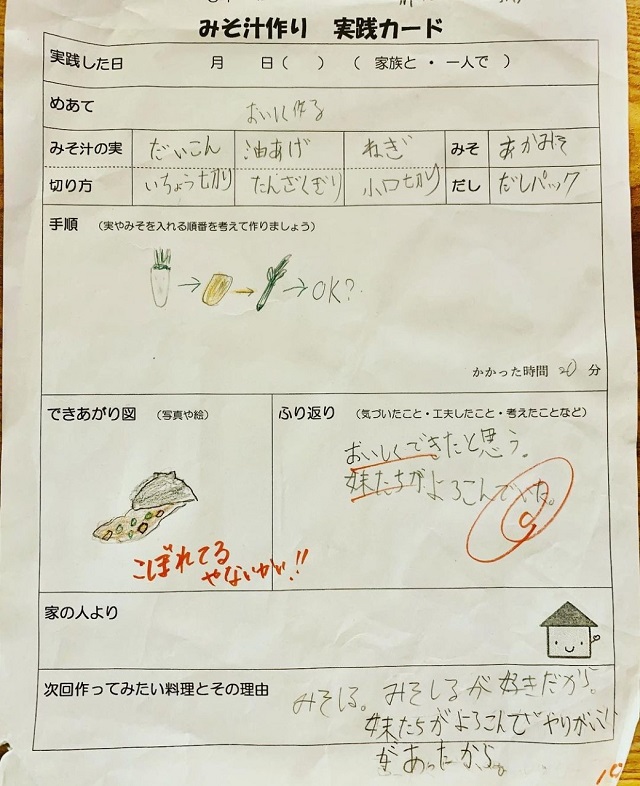 みそ汁作り 実践カード
実践した日 月 日( ) ( 家族と ・ 一人で )
めあて おいしく作る
みそ汁の実 だいこん 油あげ ねぎ みそ あかみそ
切り方 いちょう切り たんざくぎり 小口切り だし だしパック
手順 (実やみそを入れる順番を考えて作りましょう)
→ → → OK?
かかった時間 20 分
できあがり図 (写真や絵)
こぼれてる
やないかい!!
ふり返り (気づいたこと・工夫したこと・考えたことなど)
おいしくできたと思う。
妹たちがよろこんでいた。
家の人より
次回作ってみたい料理とその理由
みそしる。みそしるが好きだから。
妹たちがよろこんでやりがい
があったから。